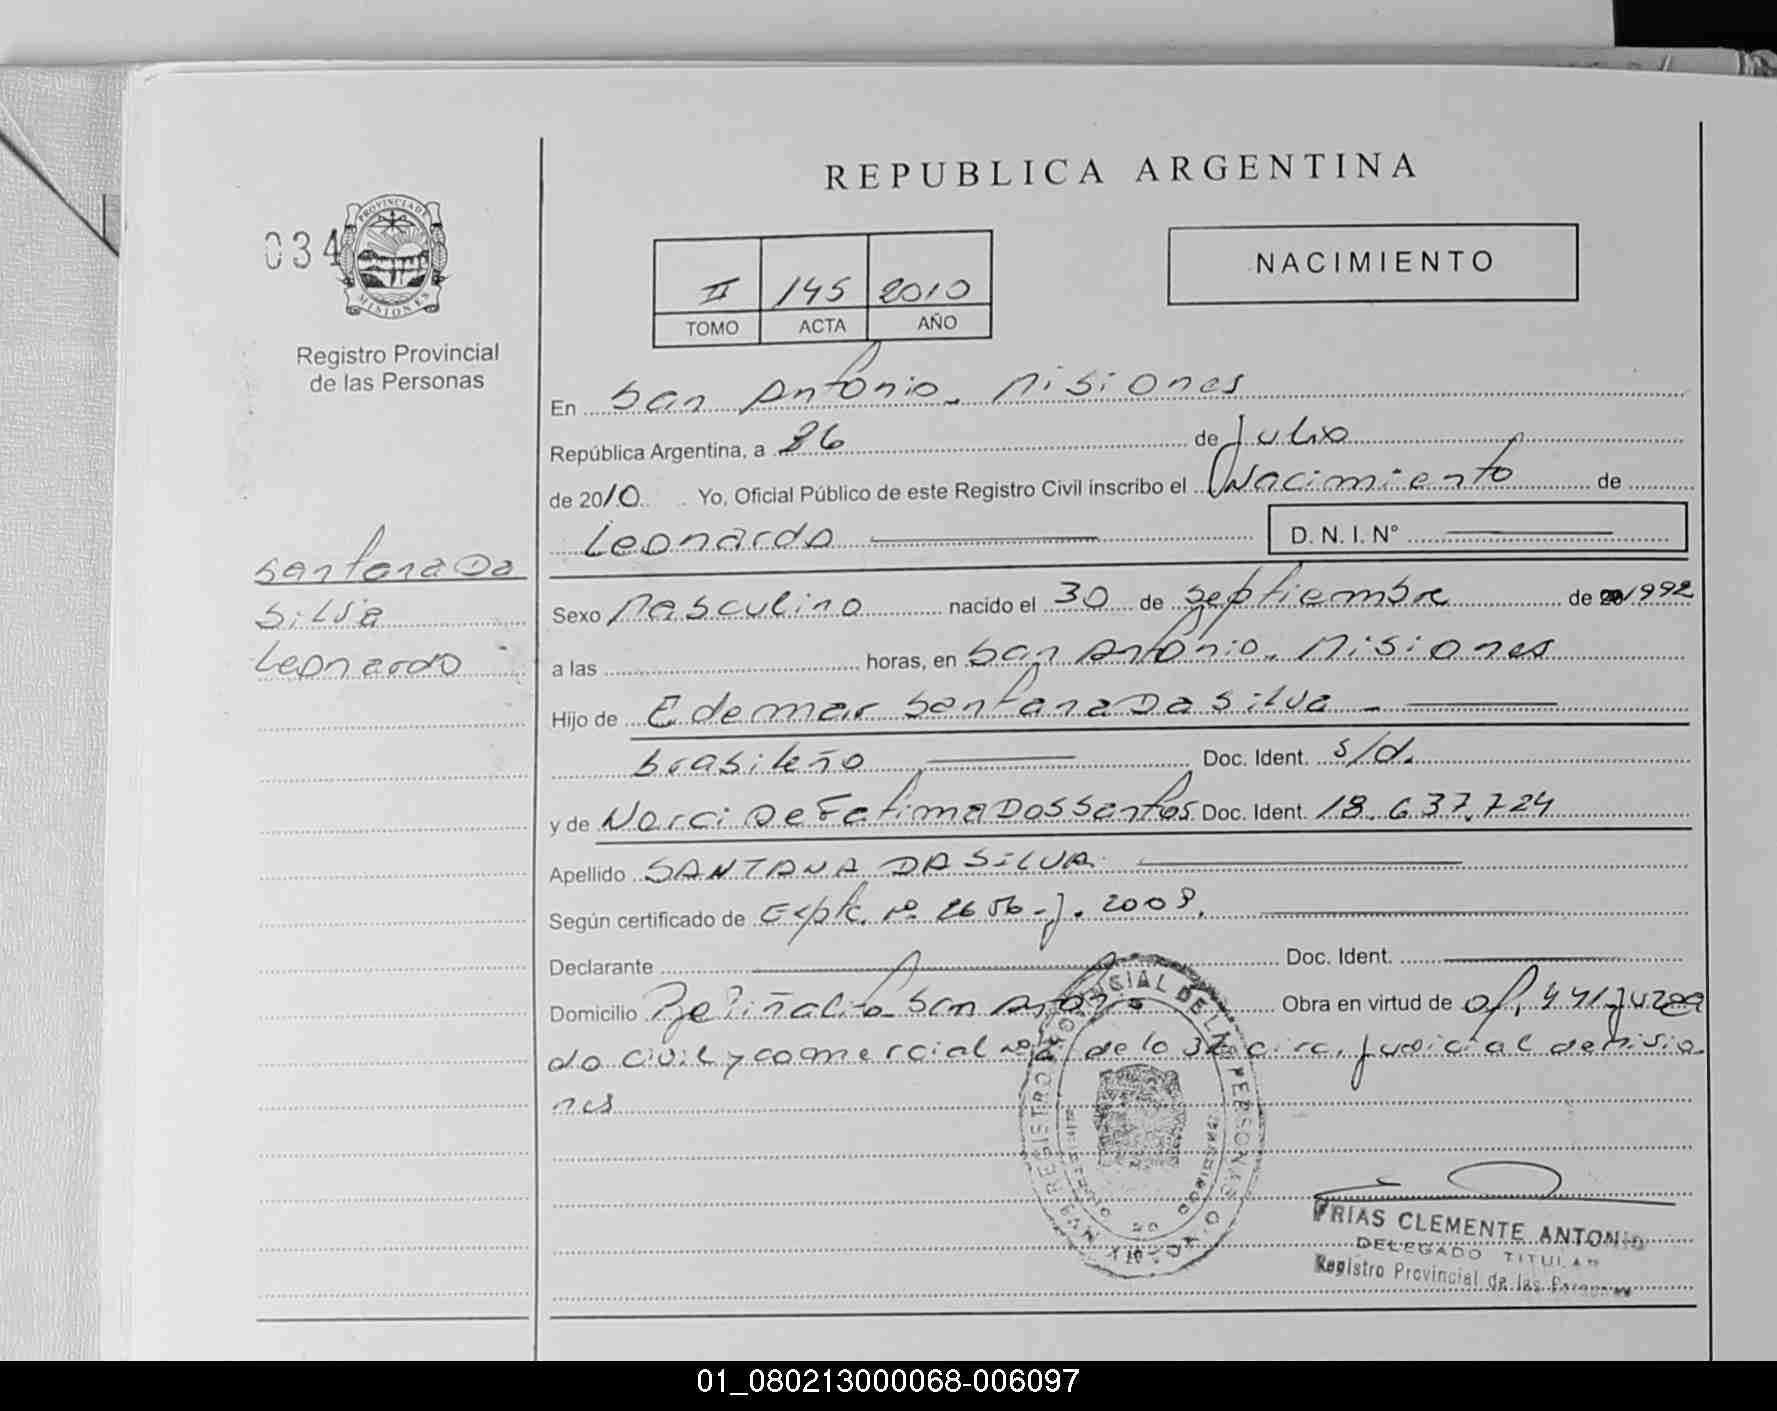 REPUBLICA ARGENTINA
034
PROVINCIA DE
MISIONES
Registro Provincial
de las Personas
II 145 2010
TOMO ACTA AÑO
NACIMIENTO
En San Antonio. Misiones
República Argentina, a 26 de Julio
de 2010 Yo, Oficial Público de este Registro Civil inscribo el Nacimiento de
Leonardo D. N. I. N°
Santana Da
Silva
Leonardo
Sexo Masculino nacido el 30 de Septiembre de 1992
a las horas, en San Antonio. Misiones
Hijo de Edemar Santana Da Silva
brasileño Doc. Ident. s/d.
y de Norci De Fatima Dos Santos Doc. Ident. 18.637.724
Apellido SANTANA DA SILVA
Según certificado de Expte. Nº 2656-J. 2008.
Declarante Doc. Ident.
Domicilio Piñalito San Antonio Obra en virtud de of. 441 Juzga
do civil y comercial nº de la 3ª circ. Judicial de Misio
nes
REGISTRO PROVINCIAL DE LAS PERSONAS
FRIAS CLEMENTE ANTONIO
DELEGADO TITULAR
Registro Provincial de las Personas
01_080213000068-006097